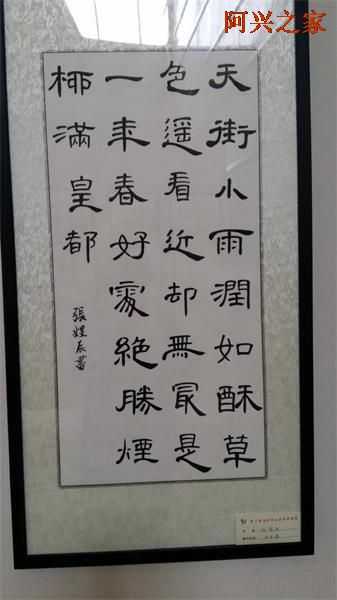 阿兴之家
天街小雨潤如酥草
色遥看近却無冣是
一年春好處絶勝煙
栁滿皇都